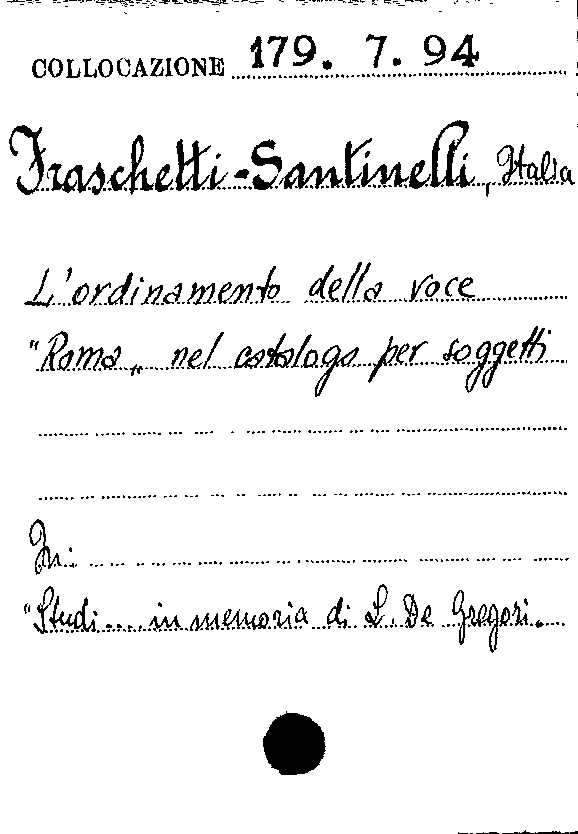 COLLOCAZIONE 179. 7. 94
Fraschetti-Santinelli, Italia
L'ordinamento della voce
"Roma„ nel catalogo per soggetti
In:
"Studi.... in memoria di L. De Gregori.